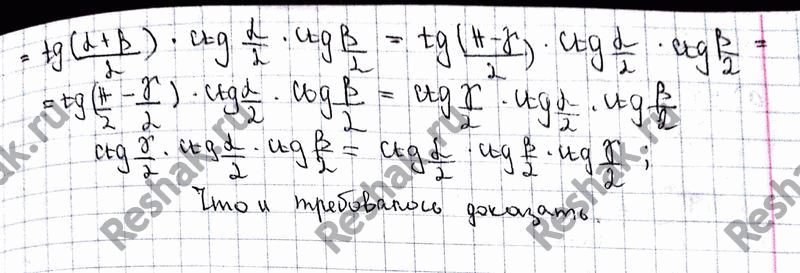 = tg(α+β/2) · ctg α/2 · ctg β/2 = tg(π-γ/2) · ctg α/2 · ctg β/2 =
= tg(π/2 - γ/2) · ctg α/2 · ctg β/2 = ctg γ/2 · ctg α/2 · ctg β/2
ctg γ/2 · ctg α/2 · ctg β/2 = ctg α/2 · ctg β/2 · ctg γ/2;
Что и требовалось доказать.
Reshak.ru
Reshak.ru
Reshak.ru